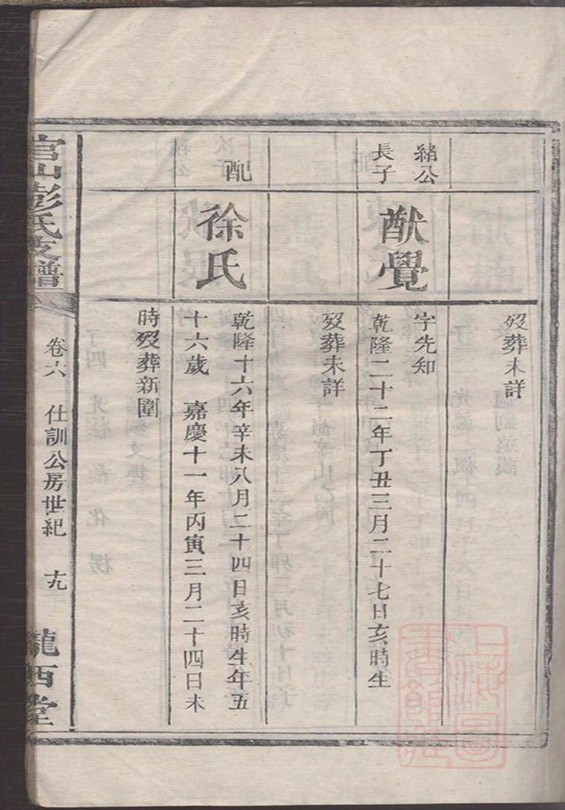 歿葬未詳
緒公
長子
猷覺
字先知
乾隆二十二年丁丑三月二十七日亥時生
歿葬未詳
配
徐氏
乾隆十六年辛未八月二十四日亥時生年五
十六歲 嘉慶十一年丙寅三月二十四日未
時歿葬新圍
官山彭氏支譜
卷六 仕訓公房世紀 十九
隴西堂
上海圖書館藏